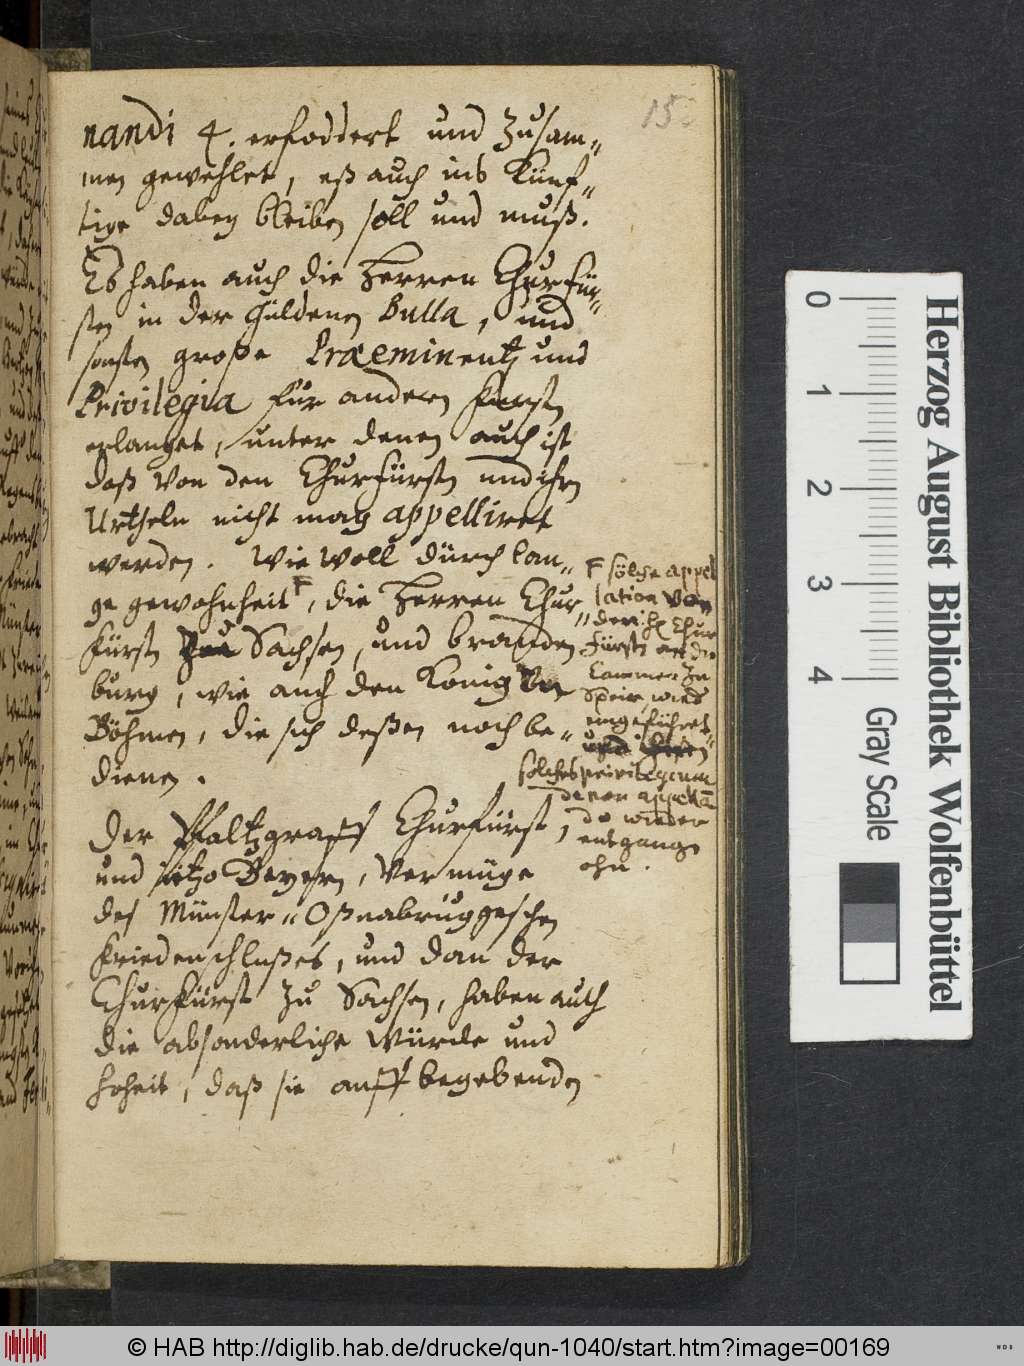 15
nandi 4. erfoddert und Zusam„
men gewehlet, eß auch ins Künf„
tige dabey bleiben soll und muß.
Es haben auch die Herren Churfür„
sten in der Güldenen Bulla, und
sonsten große Præeminentz und
Privilegia für andern Fursten
erlanget, unter denen auch ist
daß Von den Churfürsten und ihrn
Urtheln nicht mag appelliret
werden. Wie woll dürch lan„
ge gewohnheit F, die Herren Chur„
fürsten Sachsen, und branden
burg, wie auch den König Von
Böhmen, die sich deßen noch be„
dienen.
Der Pfaltzgraff Churfürst,
und ietzo Beyern, Vermüge
des Münster„Oßnabrüggeschen
Friedenschlußes, und dan der
Churfürst Zu Sachsen, haben auch
die absonderliche Würde und
hoheit, daß sie auff begebenden
F sölche appel
lation Von
den Chur
fürsten an die
Cammer Zu
Speir, wird
eingeführet„
solches privilegium
de non appella
do wieder
entgange
ohn.
0 1 2 3 4
Herzog August Bibliothek Wolfenbüttel
Gray Scale
© HAB http://diglib.hab.de/drucke/qun-1040/start.htm?image=00169